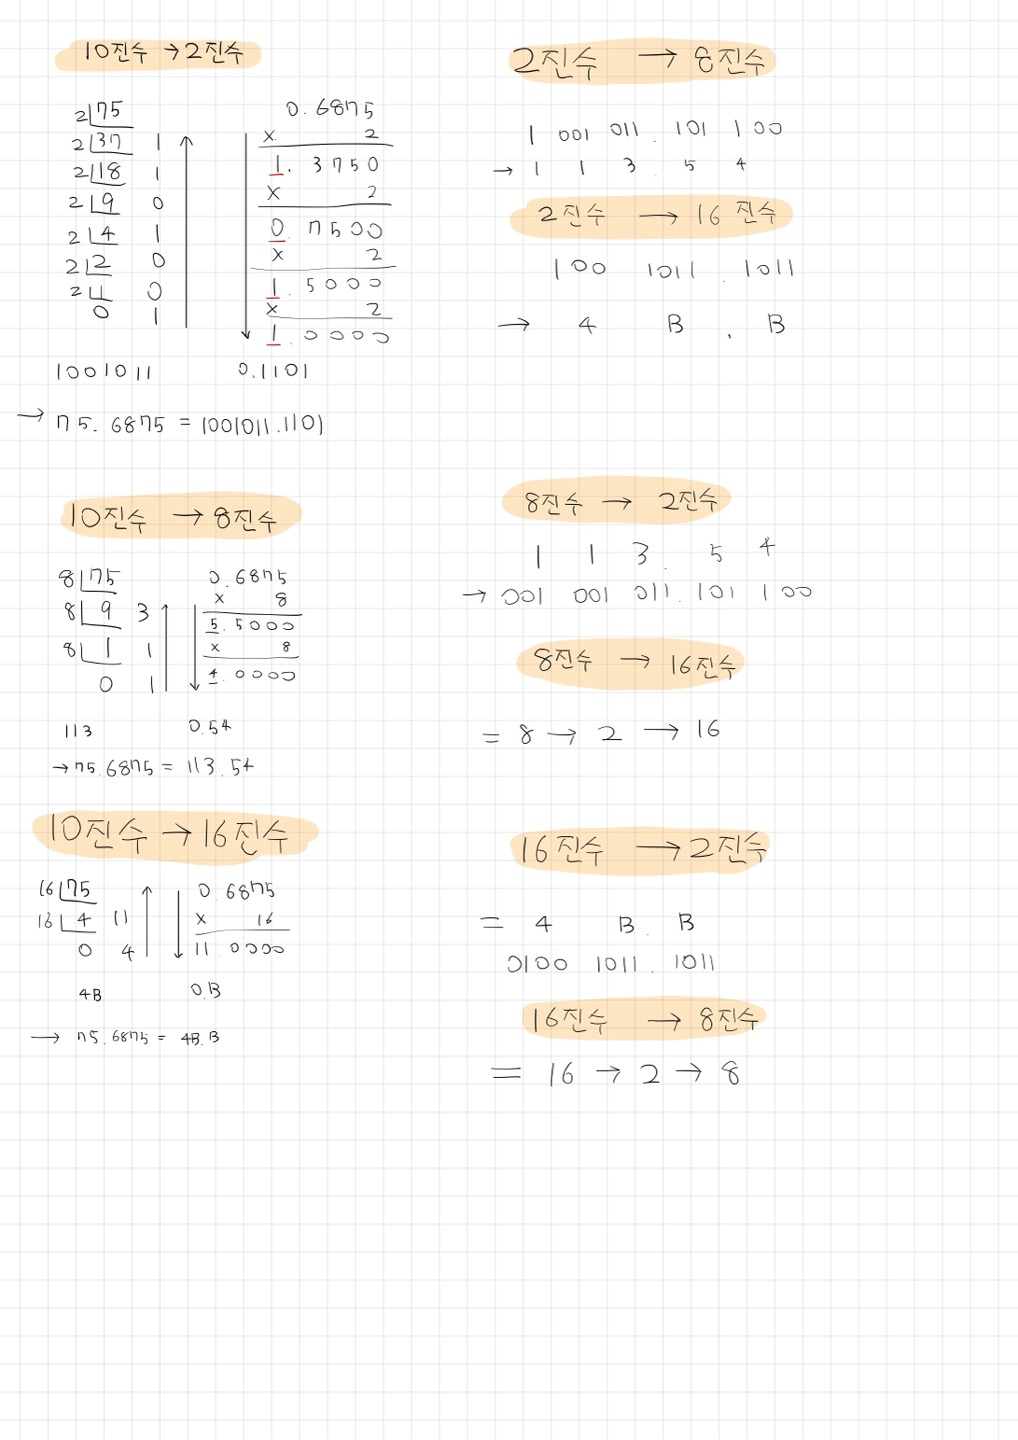 10진수 → 2진수
2 75
2 37 1
2 18 1
2 9 0
2 4 1
2 2 0
2 1 0
0 1
0.6875
x 2
1.3750
x 2
0.7500
x 2
1.5000
x 2
1.0000
1001011 0.1101
→ 75.6875 = 1001011.1101
10진수 → 8진수
8 75
8 9 3
8 1 1
0 1
0.6875
x 8
5.5000
x 8
4.0000
113 0.54
→ 75.6875 = 113.54
10진수 → 16진수
16 75
16 4 11
0 4
0.6875
x 16
11 0000
4B 0.B
→ 75.6875 = 4B.B
2진수 → 8진수
1 001 011 . 101 100
→ 1 1 3 . 5 4
2진수 → 16진수
100 1011 . 1011
→ 4 B . B
8진수 → 2진수
1 1 3 . 5 4
→ 001 001 011 . 101 100
8진수 → 16진수
= 8 → 2 → 16
16진수 → 2진수
= 4 B . B
0100 1011 . 1011
16진수 → 8진수
= 16 → 2 → 8